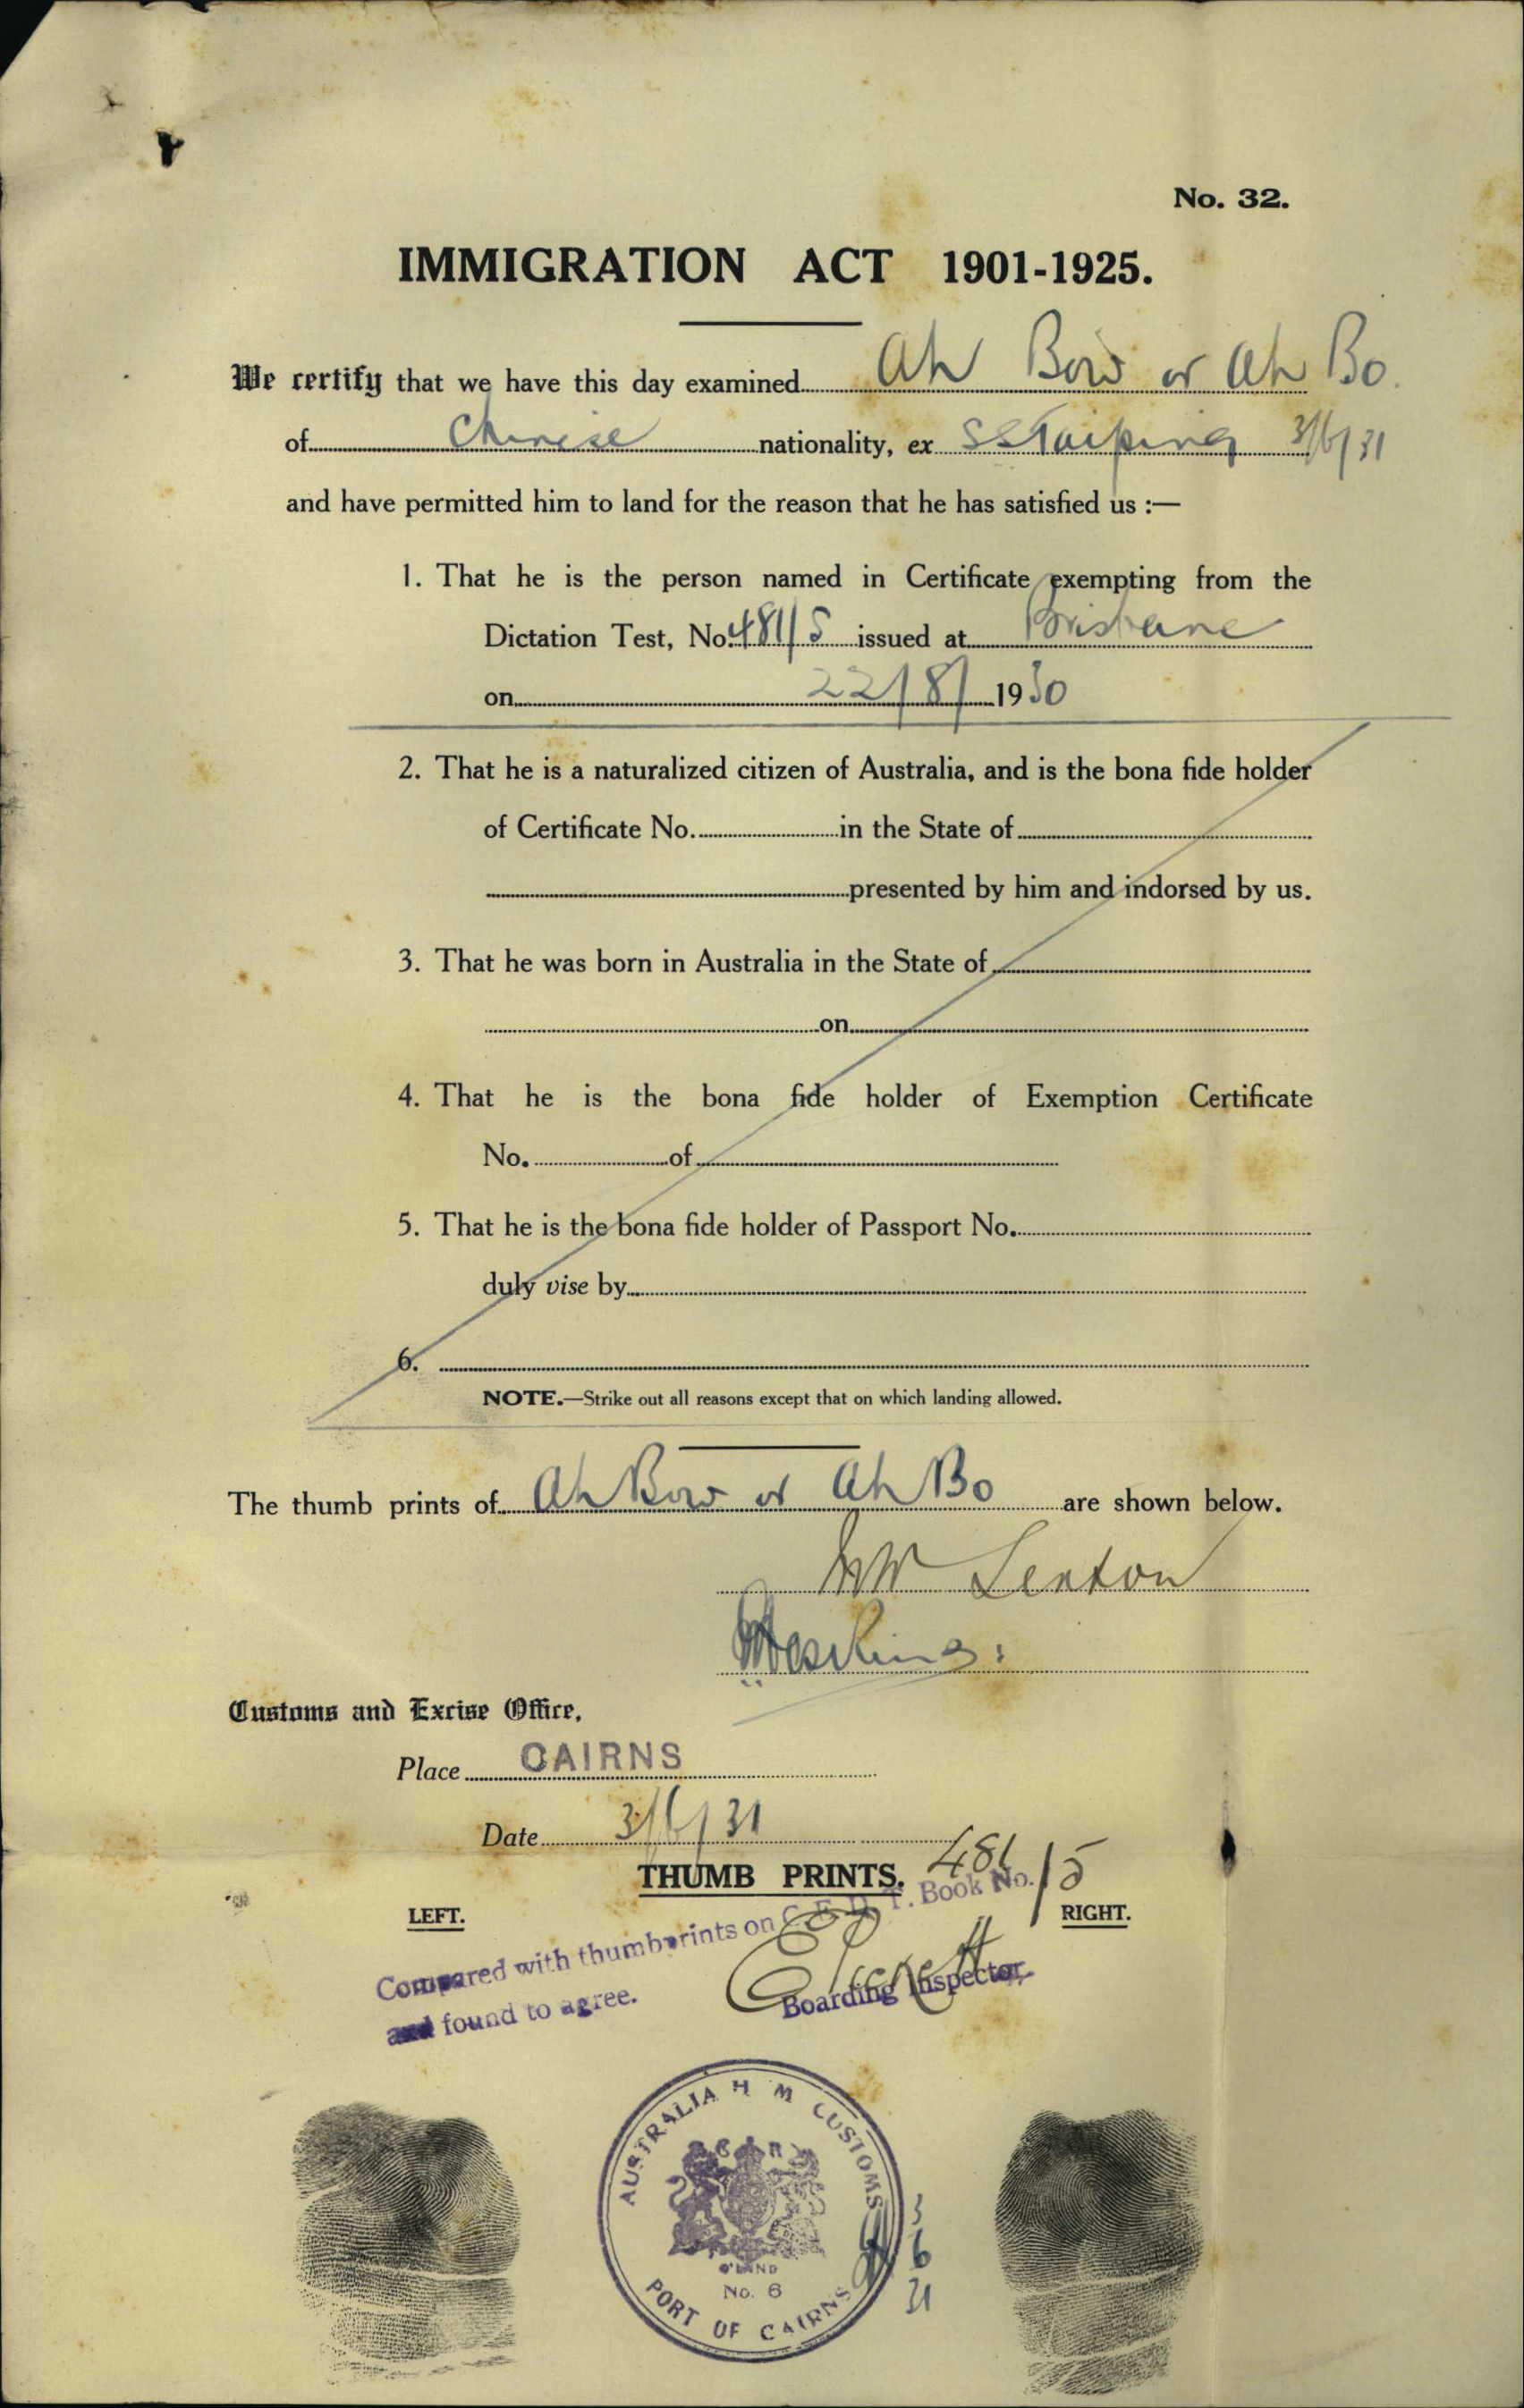 No. 32.
IMMIGRATION ACT 1901-1925.
We certify that we have this day examined Ah Bow or Ah Bo.
of Chinese nationality, ex SS Taiping 3/6/31
and have permitted him to land for the reason that he has satisfied us :—
1. That he is the person named in Certificate exempting from the
Dictation Test, No. 481/5 issued at Brisbane
on 22/8/ 1930
2. That he is a naturalized citizen of Australia, and is the bona fide holder
of Certificate No. in the State of
presented by him and indorsed by us.
3. That he was born in Australia in the State of
on
4. That he is the bona fide holder of Exemption Certificate
No. of
5. That he is the bona fide holder of Passport No.
duly vise by
6.
NOTE.—Strike out all reasons except that on which landing allowed.
The thumb prints of Ah Bow or Ah Bo are shown below.
Customs and Excise Office,
Place CAIRNS
Date 3/6/31
THUMB PRINTS.
LEFT.
RIGHT.
Compared with thumbprints on C. E. D. T. Book No. 481/5
and found to agree.
Boarding Inspector.
AUSTRALIA H M CUSTOMS
G R
Q'LAND
No. 6
PORT OF CAIRNS
3
6
31